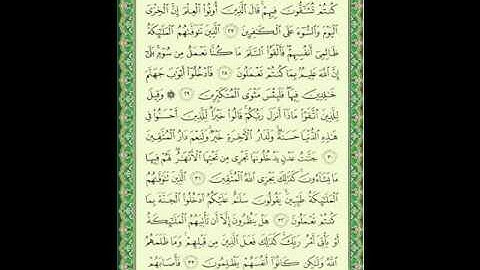 كُنتُمْ تُشَٰٓقُّونَ فِيهِمْ ۚ قَالَ ٱلَّذِينَ أُوتُوا۟ ٱلْعِلْمَ إِنَّ ٱلْخِزْىَ
ٱلْيَوْمَ وَٱلسُّوٓءَ عَلَى ٱلْكَٰفِرِينَ ٢٧ ٱلَّذِينَ تَتَوَفَّىٰهُمُ ٱلْمَلَٰٓئِكَةُ
ظَالِمِىٓ أَنفُسِهِمْ ۖ فَأَلْقَوُا۟ ٱلسَّلَمَ مَا كُنَّا نَعْمَلُ مِن سُوٓءٍۭ ۚ بَلَىٰٓ
إِنَّ ٱللَّهَ عَلِيمٌۢ بِمَا كُنتُمْ تَعْمَلُونَ ٢٨ فَٱدْخُلُوٓا۟ أَبْوَٰبَ جَهَنَّمَ
خَٰلِدِينَ فِيهَا ۖ فَلَبِئْسَ مَثْوَى ٱلْمُتَكَبِّرِينَ ٢٩ ۞ وَقِيلَ
لِلَّذِينَ ٱتَّقَوْا۟ مَاذَآ أَنزَلَ رَبُّكُمْ ۚ قَالُوا۟ خَيْرًا ۗ لِّلَّذِينَ أَحْسَنُوا۟ فِى
هَٰذِهِ ٱلدُّنْيَا حَسَنَةٌ ۚ وَلَدَارُ ٱلْءَاخِرَةِ خَيْرٌ ۚ وَلَنِعْمَ دَارُ ٱلْمُتَّقِينَ
٣٠ جَنَّٰتُ عَدْنٍ يَدْخُلُونَهَا تَجْرِى مِن تَحْتِهَا ٱلْأَنْهَٰرُ ۖ لَهُمْ فِيهَا
مَا يَشَآءُونَ ۚ كَذَٰلِكَ يَجْزِى ٱللَّهُ ٱلْمُتَّقِينَ ٣١ ٱلَّذِينَ تَتَوَفَّىٰهُمُ
ٱلْمَلَٰٓئِكَةُ طَيِّبِينَ ۙ يَقُولُونَ سَلَٰمٌ عَلَيْكُمُ ٱدْخُلُوا۟ ٱلْجَنَّةَ بِمَا
كُنتُمْ تَعْمَلُونَ ٣٢ هَلْ يَنظُرُونَ إِلَّآ أَن تَأْتِيَهُمُ ٱلْمَلَٰٓئِكَةُ
أَوْ يَأْتِىَ أَمْرُ رَبِّكَ ۚ كَذَٰلِكَ فَعَلَ ٱلَّذِينَ مِن قَبْلِهِمْ ۚ وَمَا ظَلَمَهُمُ
ٱللَّهُ وَلَٰكِن كَانُوٓا۟ أَنفُسَهُمْ يَظْلِمُونَ ٣٣ فَأَصَابَهُمْ